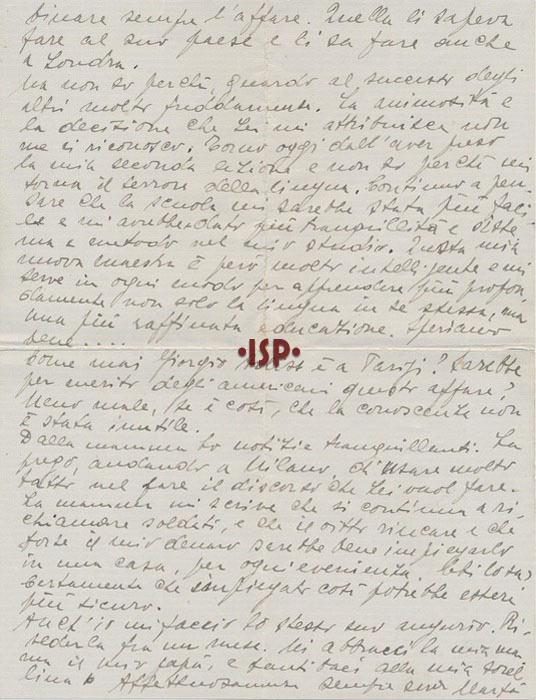 sempre l'affare. Quella li sapeva
fare al suo paese e li sa fare anche
a Londra.
Ma non so perchè, guardo al successo degli
altri molto freddamente. La animosità e
la decisione che Lei mi attribuisce non
me ci riconosco. Torno oggi dall'aver preso
la mia seconda lezione e non so perchè mi
torna il terrore della lingua. Continuo a pen-
sare che la scuola mi sarebbe stata più faci-
le e mi avrebbe dato più tranquillità e siste-
ma e metodo nel mio studio. Questa mia
nuova maestra è però molto intelligente e mi
serve in ogni modo per apprendere più profon-
damente non solo la lingua in se stessa, ma
una più raffinata educazione. Speriamo
bene....
•ISP•
Come mai Giorgio è a Parigi? Sarebbe
per merito degli americani questo affare?
Meno male, se è così, che la conoscenza non
è stata inutile.
Dalla mamma ho notizie tranquillanti. La
prego, andando a Milano, di usare molto
tatto nel fare il discorso che Lei vuol fare.
La mamma mi scrive che si continua a ri-
chiamare soldati, e che il vitto rincara e che
forse il mio denaro sarebbe bene impiegarlo
in una casa, per ogni evenienza.
Certamente che impiegato così potrebbe essere
più sicuro.
Anch'io mi faccio lo stesso suo augurio. Ri-
vederla fra un mese. Mi abbracci la mia mam-
ma il mio papà, e tanti baci alla mia sorel-
lina. Affettuosamente sempre sua Marta